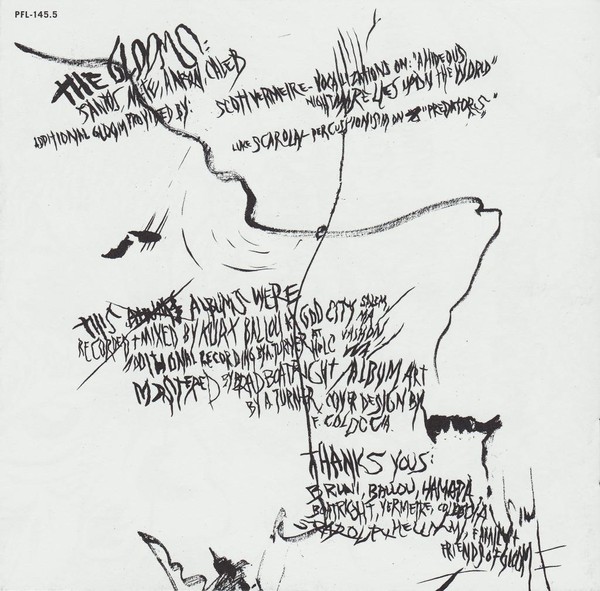 PFL-145.5
THE GLOOMS:
SANTOS, NATE, AARON CALEB
ADDITIONAL GLOOM PROVIDED BY:
SCOTT VERMEIRE- VOCALIZATIONS ON: "A HIDEOUS
NIGHTMARE LIES UPON THE WORLD"
LUKE SCAROLA- PERCUSSIONISTA ON "PREDATORS"
THIS ALBUMS WERE
RECORDED + MIXED BY KURT BALLOU AT GOD CITY SALEM, MA
ADDITIONAL RECORDING BY A.TURNER AT VASHON, WA
MASTERED BY BRAD BOATRIGHT / ALBUM ART
BY A.TURNER COVER DESIGN BY
F. COLOCCIA
THANKS YOUS:
BRUNI, BALLOU, HAMADA,
BOATRIGHT, VERMEIRE, COLOCCIA
SCAROLA, FAMILY +
FRIENDS OF GLOOM